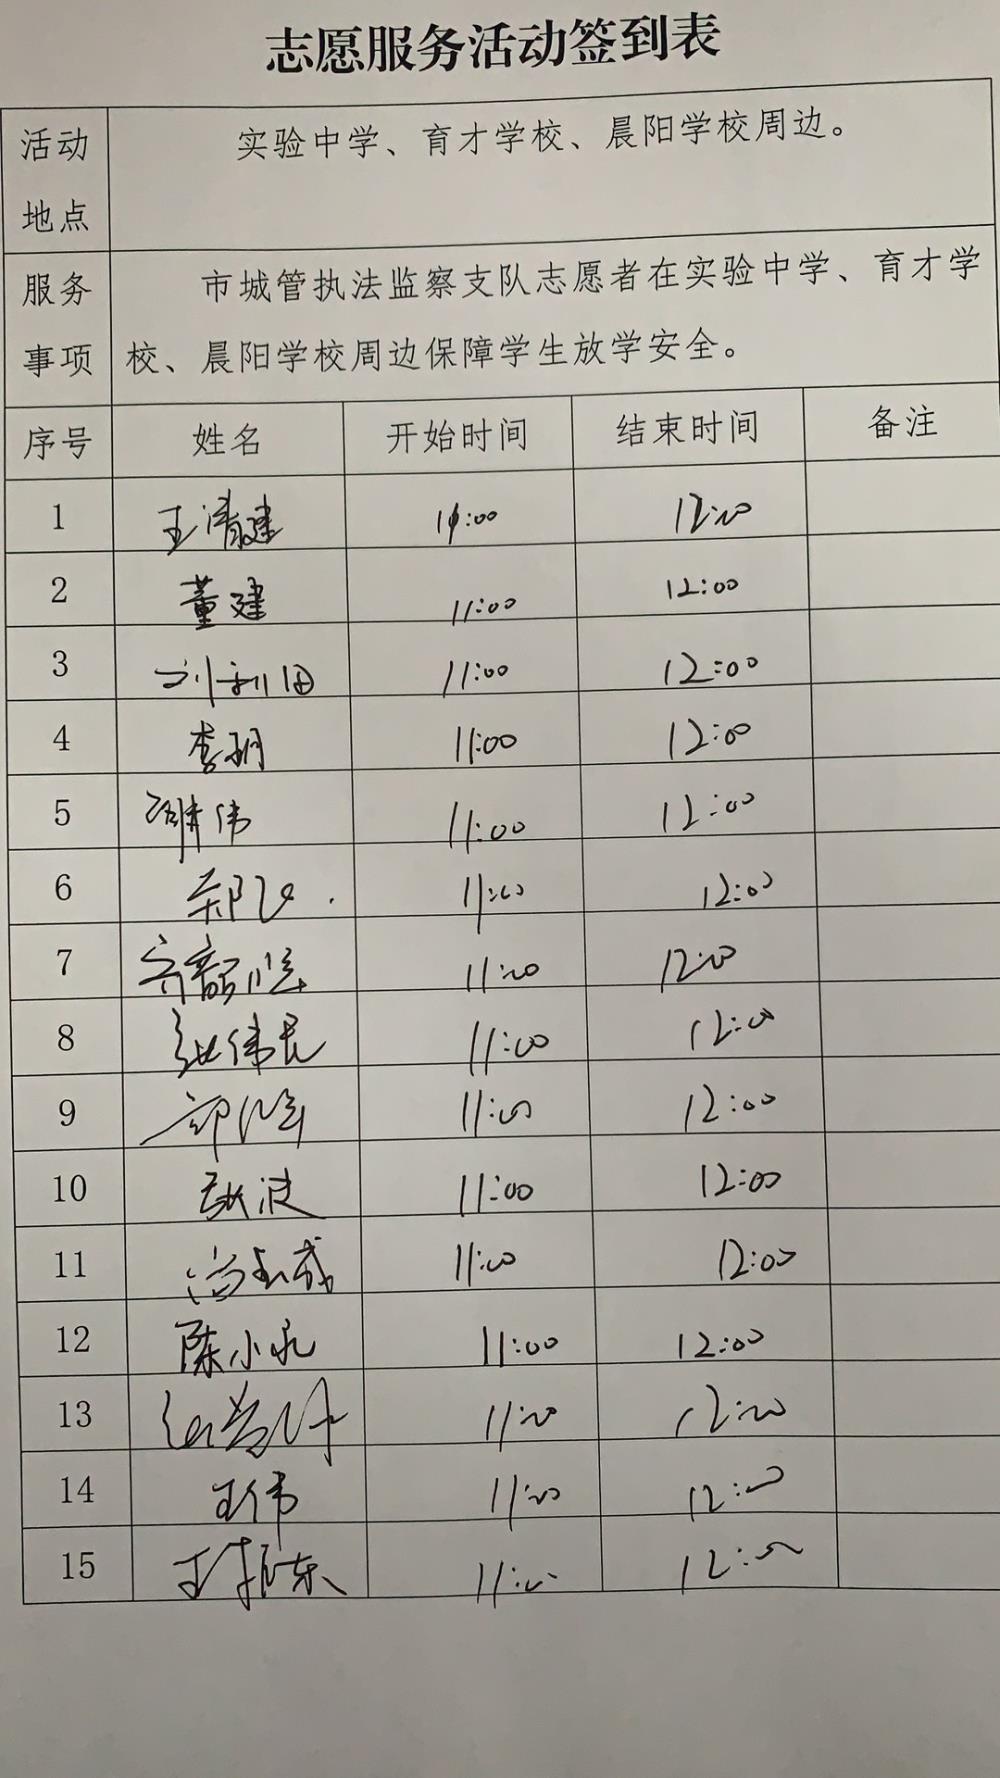 志愿服务活动签到表
活动地点 实验中学、育才学校、晨阳学校周边。
服务事项 市城管执法监察支队志愿者在实验中学、育才学
校、晨阳学校周边保障学生放学安全。
序号 姓名 开始时间 结束时间 备注
1 王清建 11:00 12:00
2 董建 11:00 12:00
3 11:00 12:00
4 李玥 11:00 12:00
5 伟 11:00 12:00
6 郑 11:00 12:00
7 齐韶 11:00 12:00
8 张伟民 11:00 12:00
9 11:00 12:00
10 张波 11:00 12:00
11 冯玉成 11:00 12:00
12 陈小永 11:00 12:00
13 11:00 12:00
14 王伟 11:00 12:00
15 王 东 11:00 12:00